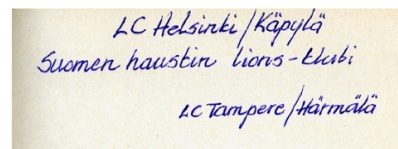 LC Helsinki/Käpylä
Suomen hauskin lions-klubi
LC Tampere/Härmälä